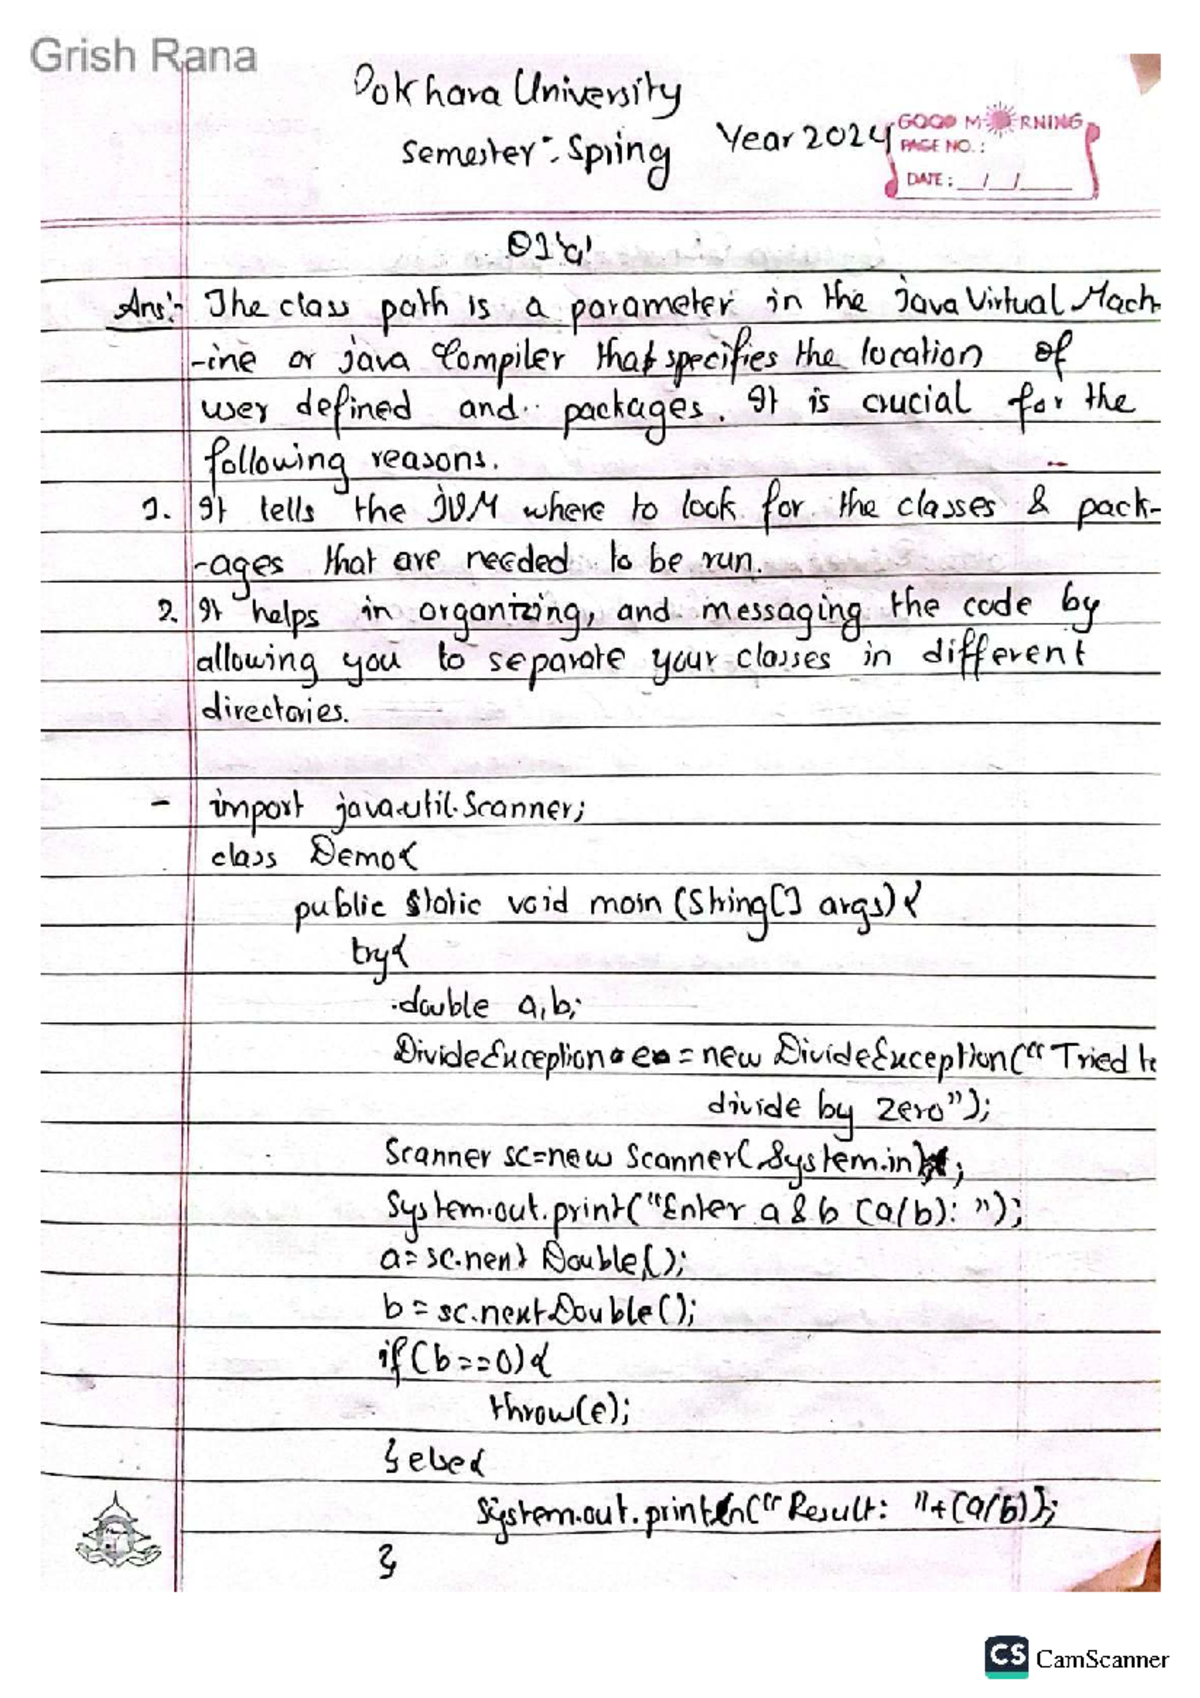 Grish Rana
Pokhara University
Semester :- Spring Year 2024
GOOD MORNING
PAGE NO.:
DATE: / /
Q1 'a'
Ans:- The class path is a parameter in the Java Virtual Mach-
-ine or java Compiler that specifies the location of
user defined and packages. It is crucial for the
following reasons.
1. It tells the JVM where to look for the classes & pack-
-ages that are needed to be run.
2. It helps in organizing, and messaging the code by
allowing you to separate your classes in different
directories.
- import java.util.Scanner;
class Demo{
public static void main (String[] args) {
try{
double a,b;
DivideException e = new DivideException("Tried to
divide by zero");
Scanner sc=new Scanner(System.in);
System.out.print("Enter a & b (a/b): ");
a= sc.next Double();
b = sc.nextDouble();
if(b==0){
throw(e);
}else{
System.out.println("Result: "+(a/b));
}
CS CamScanner